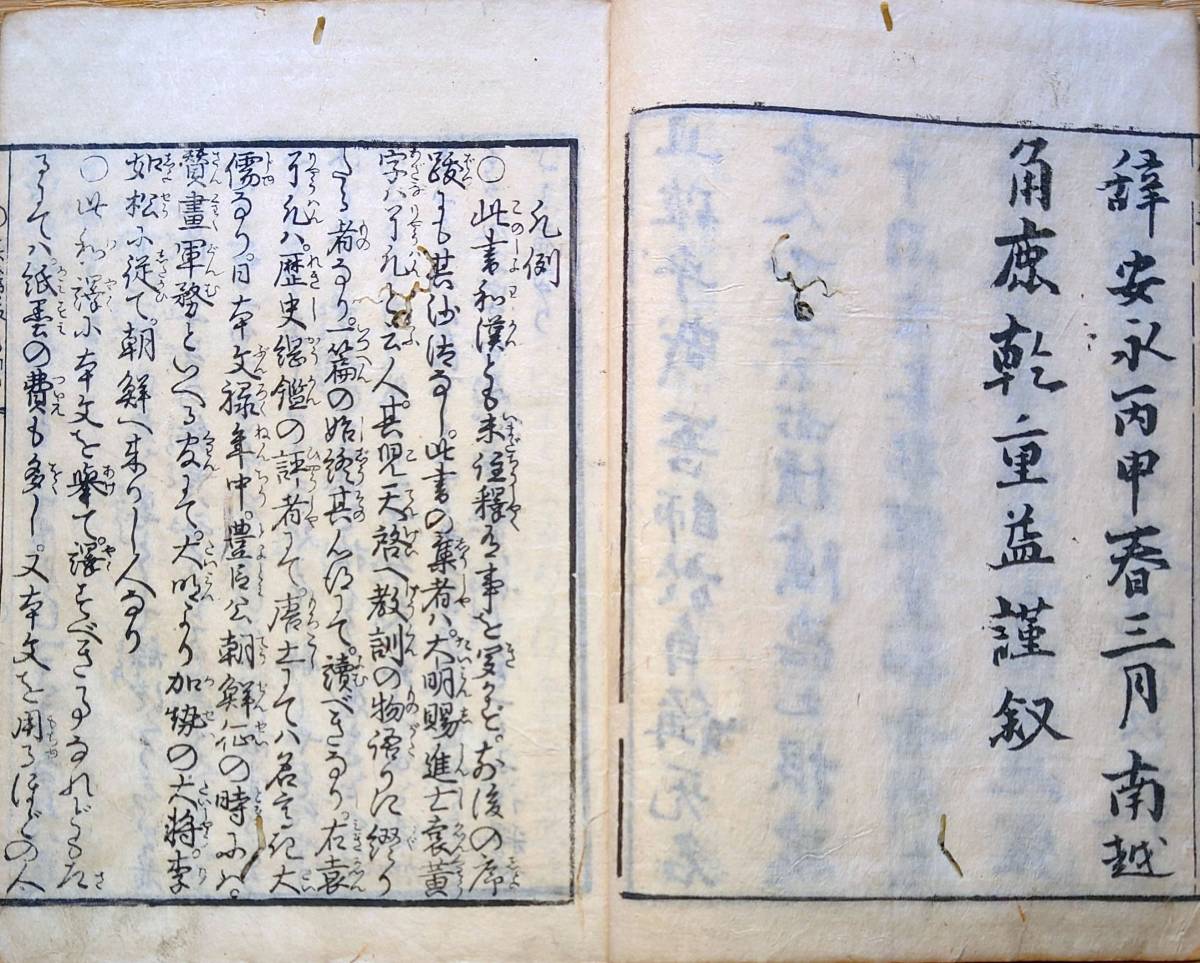 辞安永丙申春三月南越
角鹿乾重益謹叙
凡例
○此書和漢とも未註釋有事を聞かず。前後の序
跋にも其沙汰なし。此書の薬者ハ。大明賜進士袁黄
字ハ了凡と云人。其児天啓へ教訓の物語りに綴り
たる者なり。一篇の始終其心得にて。讀べきなり。右袁
了凡ハ。歴史綱鑑の評者にて。唐土にてハ名高き大
儒なり。日本文禄年中。豊臣公朝鮮征の時にハ。
賛畫軍務といへる官にて。大明より加勢の大将。李
如松に従て。朝鮮へ来りし人なり
○此和譯に本文を擧て。譯すべき事なれども左
するてハ。紙墨の費も多し。又本文を用るほどの人